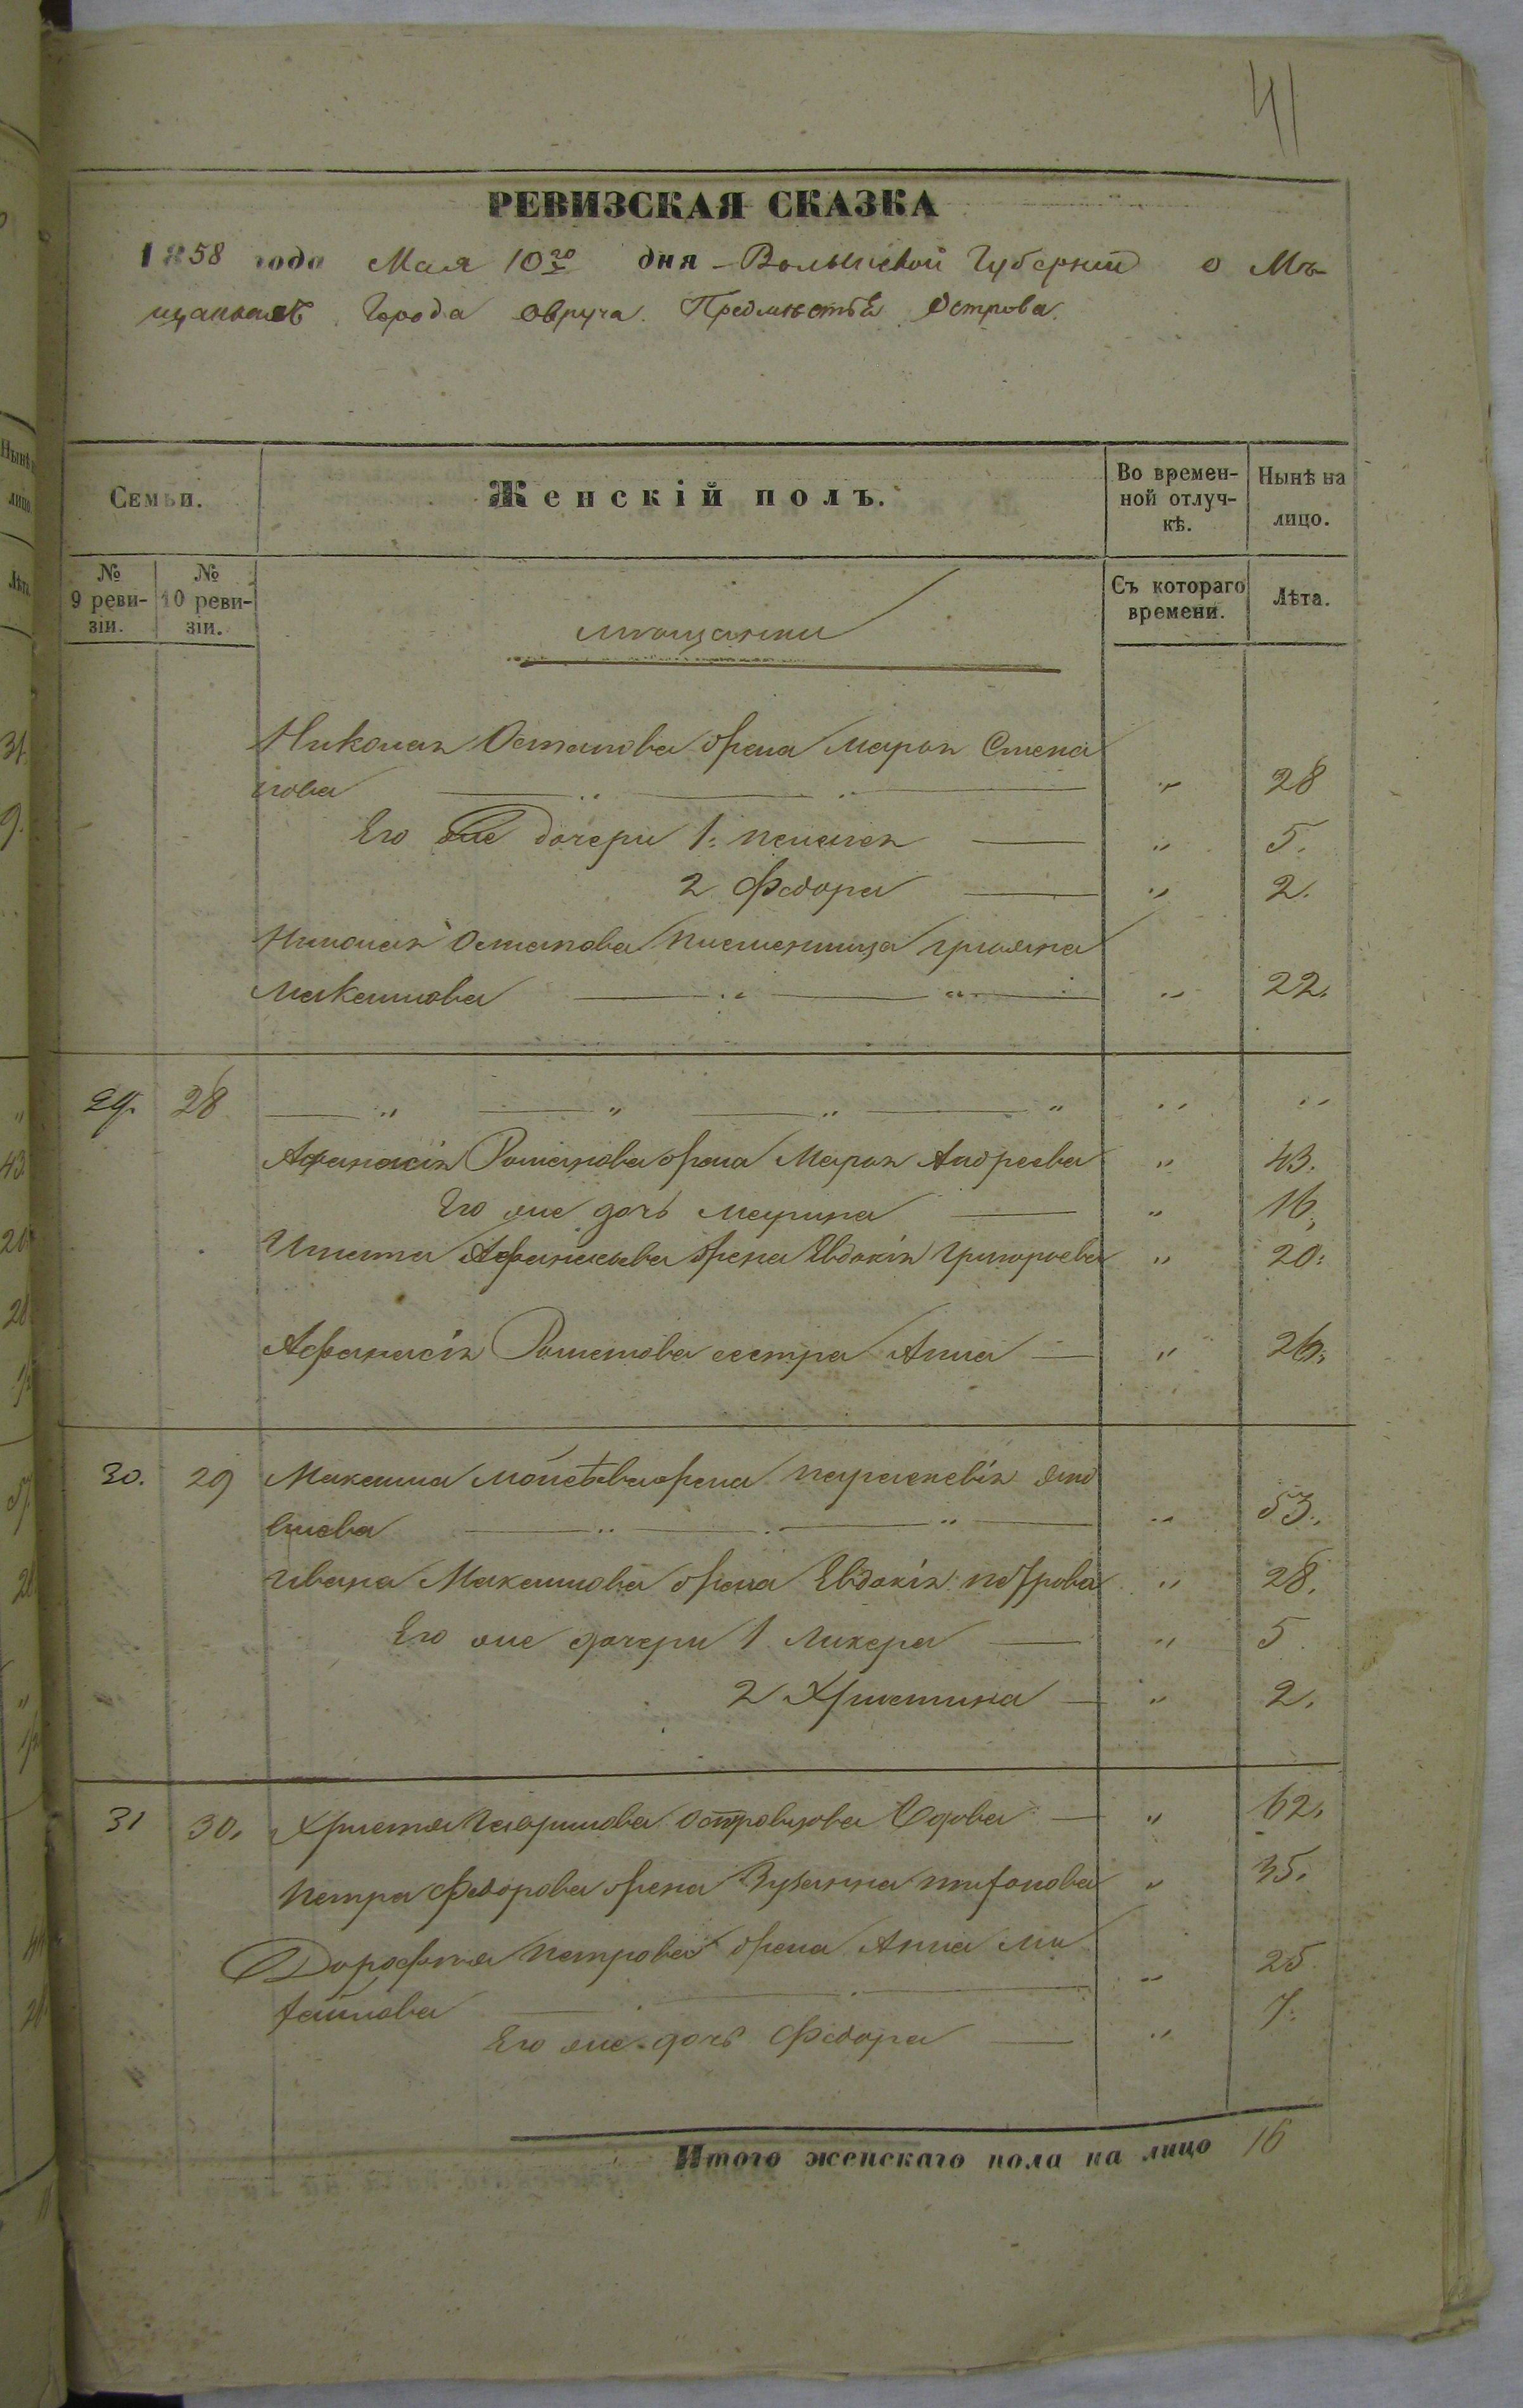 41
РЕВИЗСКАЯ СКАЗКА
1858 года Мая 10го дня Волынской Губернии о Мѣ-
щанахъ Города Овруча Предмѣстья Острова.
Семьи.
Женскій полъ.
Во времен-
ной отлуч-
кѣ.
Нынѣ на
лицо.
№
9 реви-
зіи.
№
10 реви-
зіи.
Съ котораго
времени.
Лѣта.
мѣщанки
Николая Остапова жена Марья Степа
нова " " " 28
Его же дочери 1. Пелагея " 5.
2 Федора " 2.
Николая Остапова племянница
Максимова " " " 22.
29. 28 " " " " " "
Афанасія Романова жена Марья Андреева " 43.
Его же дочь Марина " 16.
Игната Афанасьева жена Евдокія Григорьева " 20.
Афанасія Романова сестра Анна " 26.
30. 29 Максима жена Параскевія
" " " 53.
Ивана Максимова жена Евдокія Петрова " 28.
Его же дочери 1 Ликера " 5
2 Христина " 2.
31 30. Островцова Вдова " 62.
Петра Федорова жена " 35.
Дорофѣя Петрова жена Анна Ми
хайлова " 25
Его же дочь Федора " 7.
Итого женскаго пола на лицо 16